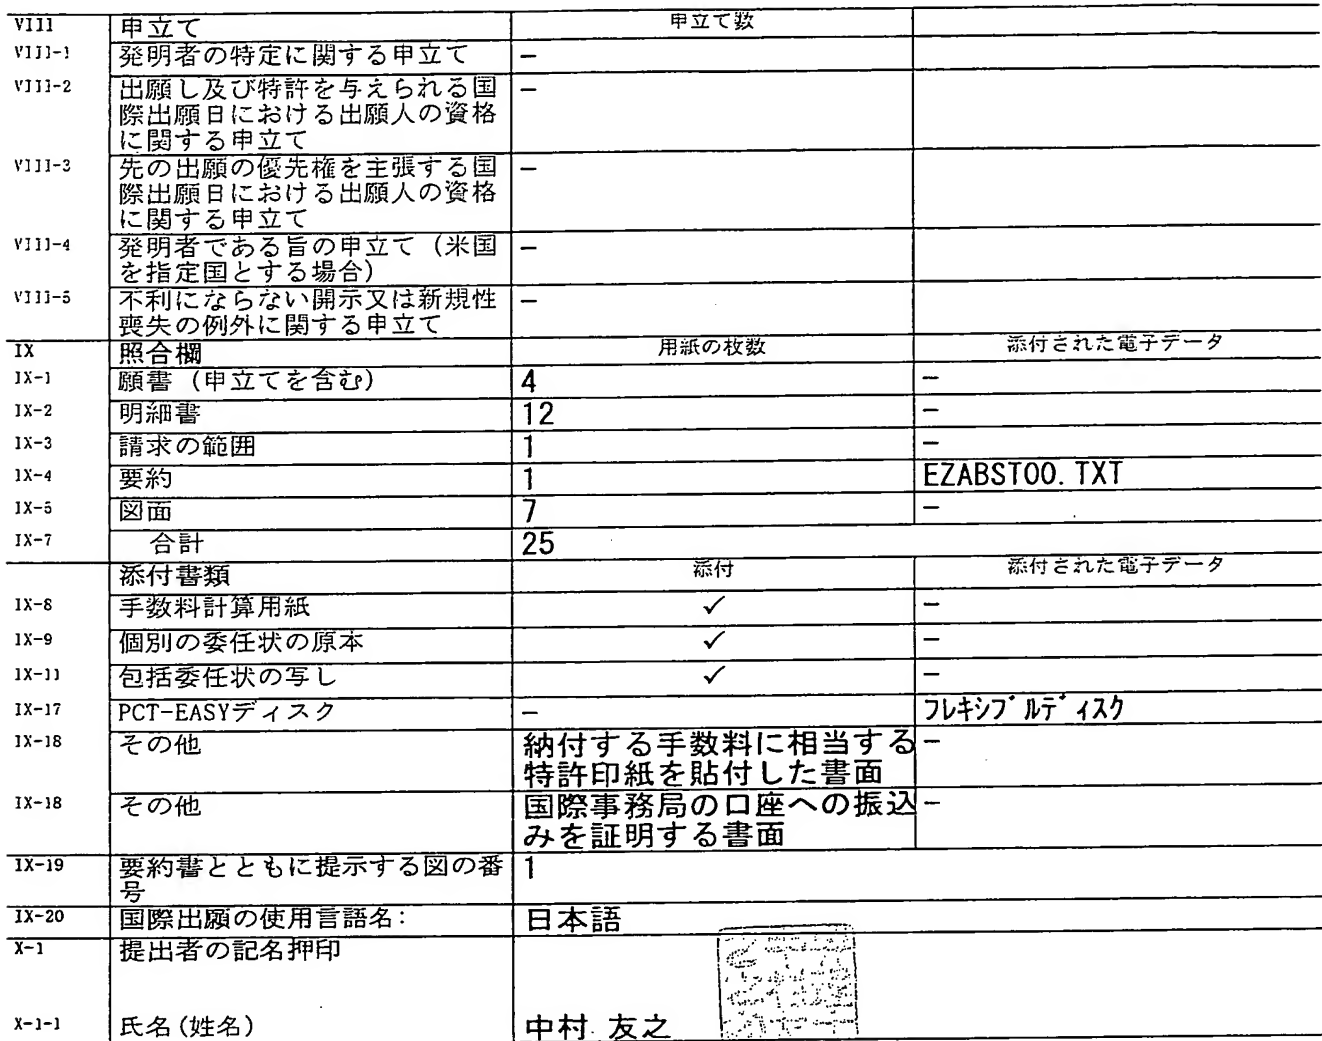 VIII 申立て 申立て数
VIII-1 発明者の特定に関する申立て -
VIII-2 出願し及び特許を与えられる国 -
際出願日における出願人の資格
に関する申立て
VIII-3 先の出願の優先権を主張する国 -
際出願日における出願人の資格
に関する申立て
VIII-4 発明者である旨の申立て（米国 -
を指定国とする場合）
VIII-5 不利にならない開示又は新規性 -
喪失の例外に関する申立て
IX 照合欄 用紙の枚数 添付された電子データ
IX-1 願書（申立てを含む） 4 -
IX-2 明細書 12 -
IX-3 請求の範囲 1 -
IX-4 要約 1 EZABST00.TXT
IX-5 図面 7 -
IX-7 合計 25
添付書類 添付 添付された電子データ
IX-8 手数料計算用紙 ✓ -
IX-9 個別の委任状の原本 ✓ -
IX-11 包括委任状の写し ✓ -
IX-17 PCT-EASYディスク - フレキシブルディスク
IX-18 その他 納付する手数料に相当する -
特許印紙を貼付した書面
IX-18 その他 国際事務局の口座への振込 -
みを証明する書面
IX-19 要約書とともに提示する図の番 1
号
IX-20 国際出願の使用言語名： 日本語
X-1 提出者の記名押印
X-1-1 氏名(姓名) 中村 友之